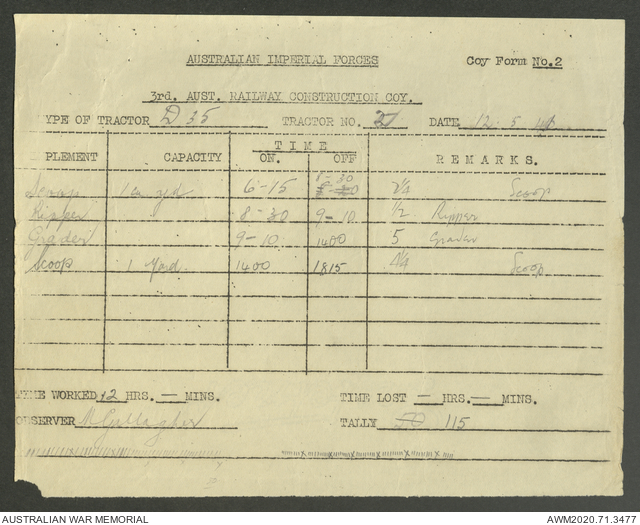 AUSTRALIAN IMPERIAL FORCES Coy Form No.2
3rd. AUST. RAILWAY CONSTRUCTION COY.
YPE OF TRACTOR D 35 TRACTOR NO. DATE 12. 5
T I M E
PLEMENT CAPACITY ON. OFF R E M A R K S.
Scoop 1 cu yd 6-15 8-30 Scoop
Ripper 8-30 9-10 1/2 Ripper
Grader 9-10 1400 5 Grader
Scoop 1 Yard 1400 1815 Scoop
TIME WORKED 12 HRS. — MINS. TIME LOST — HRS. — MINS.
OBSERVER Gallagher TALLY 50 115
AUSTRALIAN WAR MEMORIAL AWM2020.71.3477